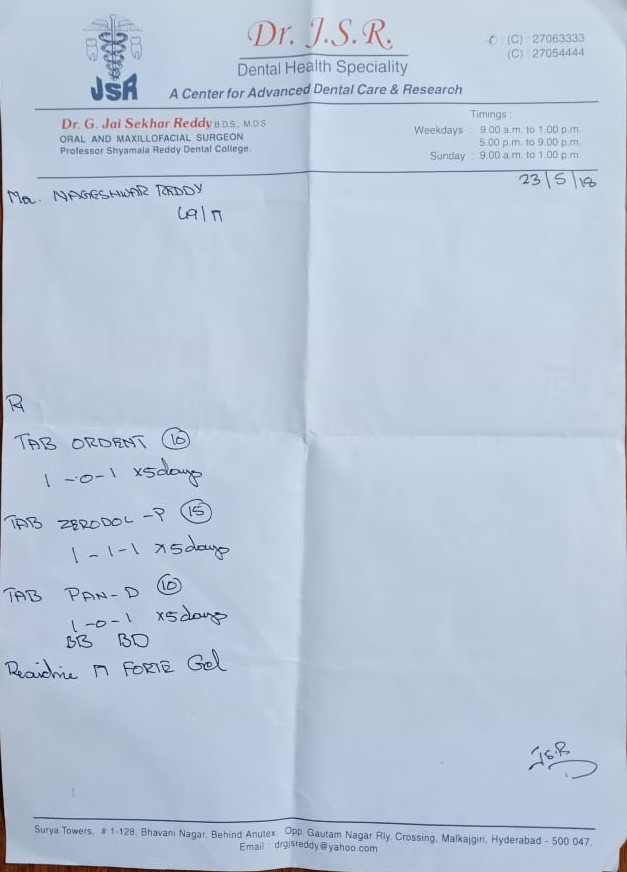 JSR
Dr. J.S.R.
Dental Health Speciality
A Center for Advanced Dental Care & Research
✆ : (C) : 27063333
(C) : 27054444
Dr. G. Jai Sekhar Reddy B.D.S., M.D.S
ORAL AND MAXILLOFACIAL SURGEON
Professor Shyamala Reddy Dental College.
Timings :
Weekdays : 9.00 a.m. to 1.00 p.m.
5.00 p.m. to 9.00 p.m.
Sunday : 9.00 a.m. to 1.00 p.m.
23/5/18
NAGESHWAR REDDY
Rx
TAB ORDENT 10
1 -0-1 x5days
TAB ZERODOL -P 15
1-1-1 x5days
TAB PAN-D 10
1-0-1 x5days
BB BD
M FORTE Gel
J.S.R
Surya Towers, # 1-128, Bhavani Nagar, Behind Anutex, Opp. Gautam Nagar Rly. Crossing, Malkajgiri, Hyderabad - 500 047.
Email : drgjsreddy@yahoo.com